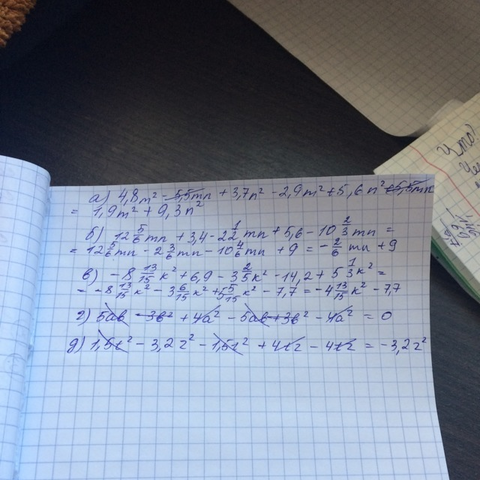 а) 4,8m² - 5,5mn + 3,7n² - 2,9m² + 5,6n² + 5,5mn
= 1,9m² + 9,3n²
б) 12 5/6 mn + 3,4 - 2 1/2 mn + 5,6 - 10 2/3 mn =
= 12 5/6 mn - 2 3/6 mn - 10 4/6 mn + 9 = - 2/6 mn + 9
в) - 8 13/15 k² + 6,9 - 3 2/5 k² - 14,2 + 5 1/3 k² =
= - 8 13/15 k² - 3 6/15 k² + 5 5/15 k² - 7,7 = -4 13/15 k² - 7,7
г) 5ab - 3b² + 4a² - 5ab + 3b² - 4a² = 0
д) 1,5t² - 3,2z² - 1,5t² + 4tz - 4tz = -3,2z²